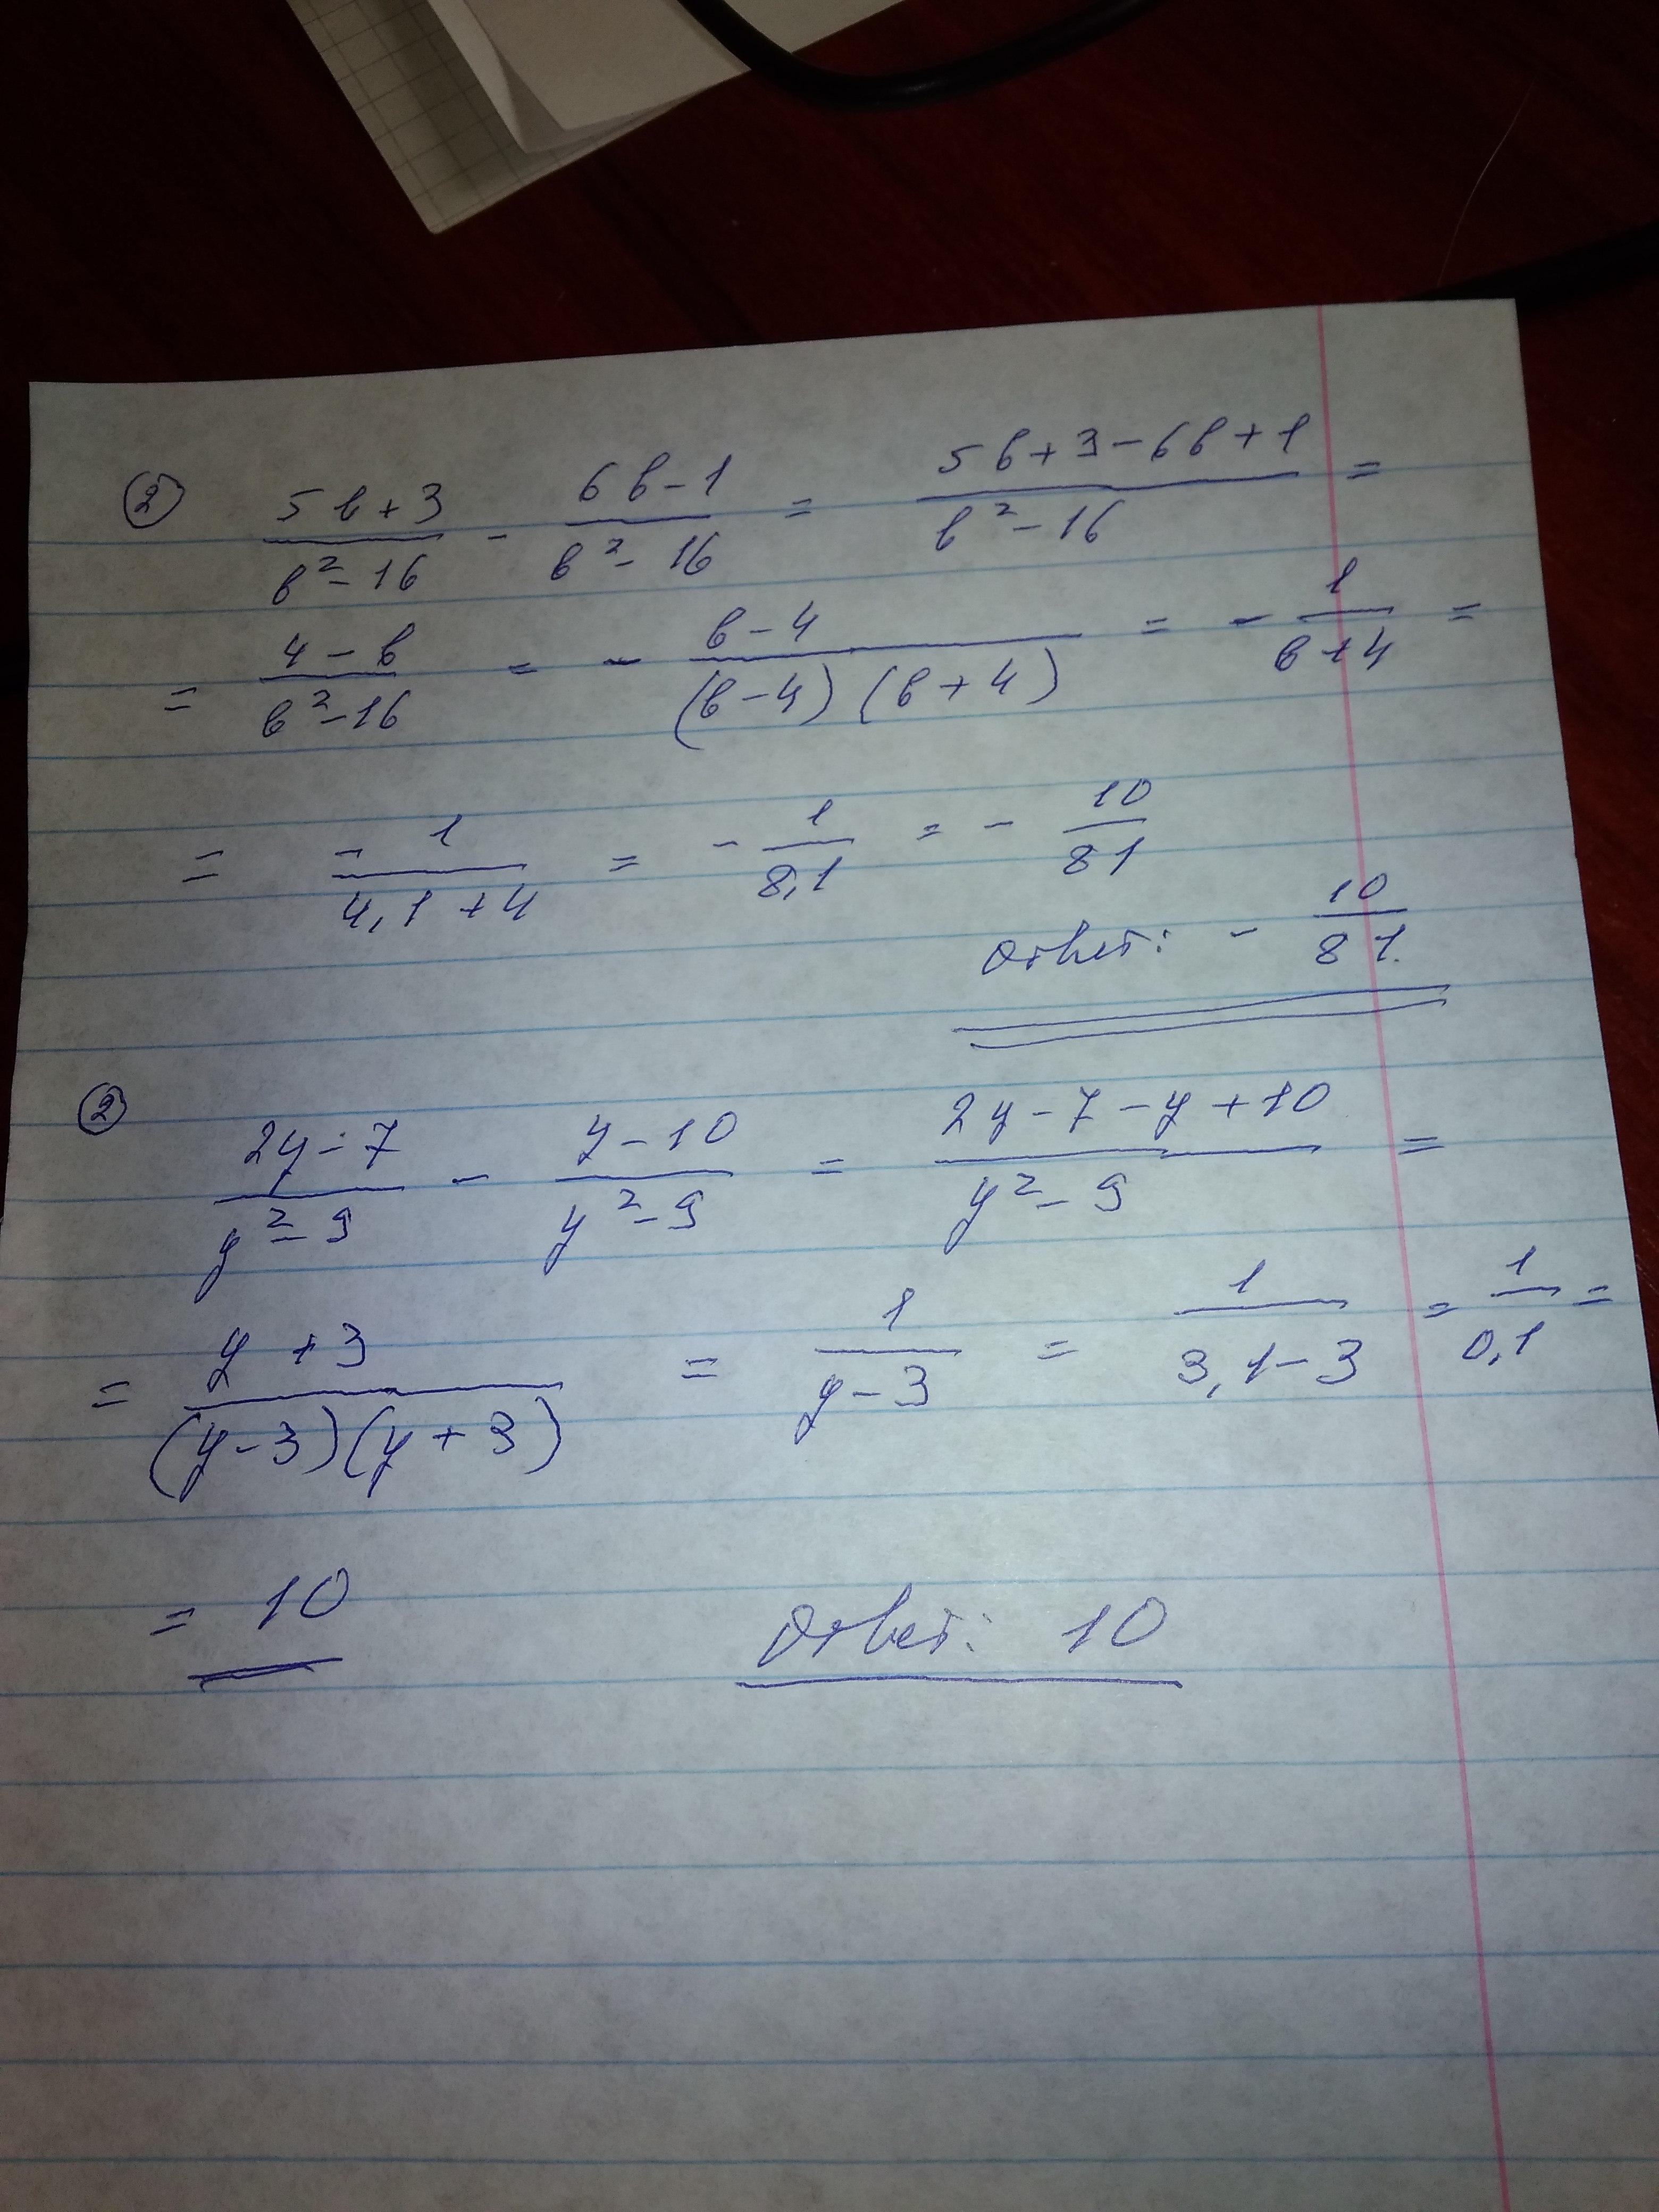 ② (5b+3)/(b²-16) - (6b-1)/(b²-16) = (5b+3-6b+1)/(b²-16) =
= (4-b)/(b²-16) = - (b-4)/((b-4)(b+4)) = - 1/(b+4) =
= -1/(4,1+4) = - 1/8,1 = - 10/81
Ответ: - 10/81.
② (2y-7)/(y²-9) - (y-10)/(y²-9) = (2y-7-y+10)/(y²-9) =
= (y+3)/((y-3)(y+3)) = 1/(y-3) = 1/(3,1-3) = 1/0,1 =
= 10 Ответ: 10